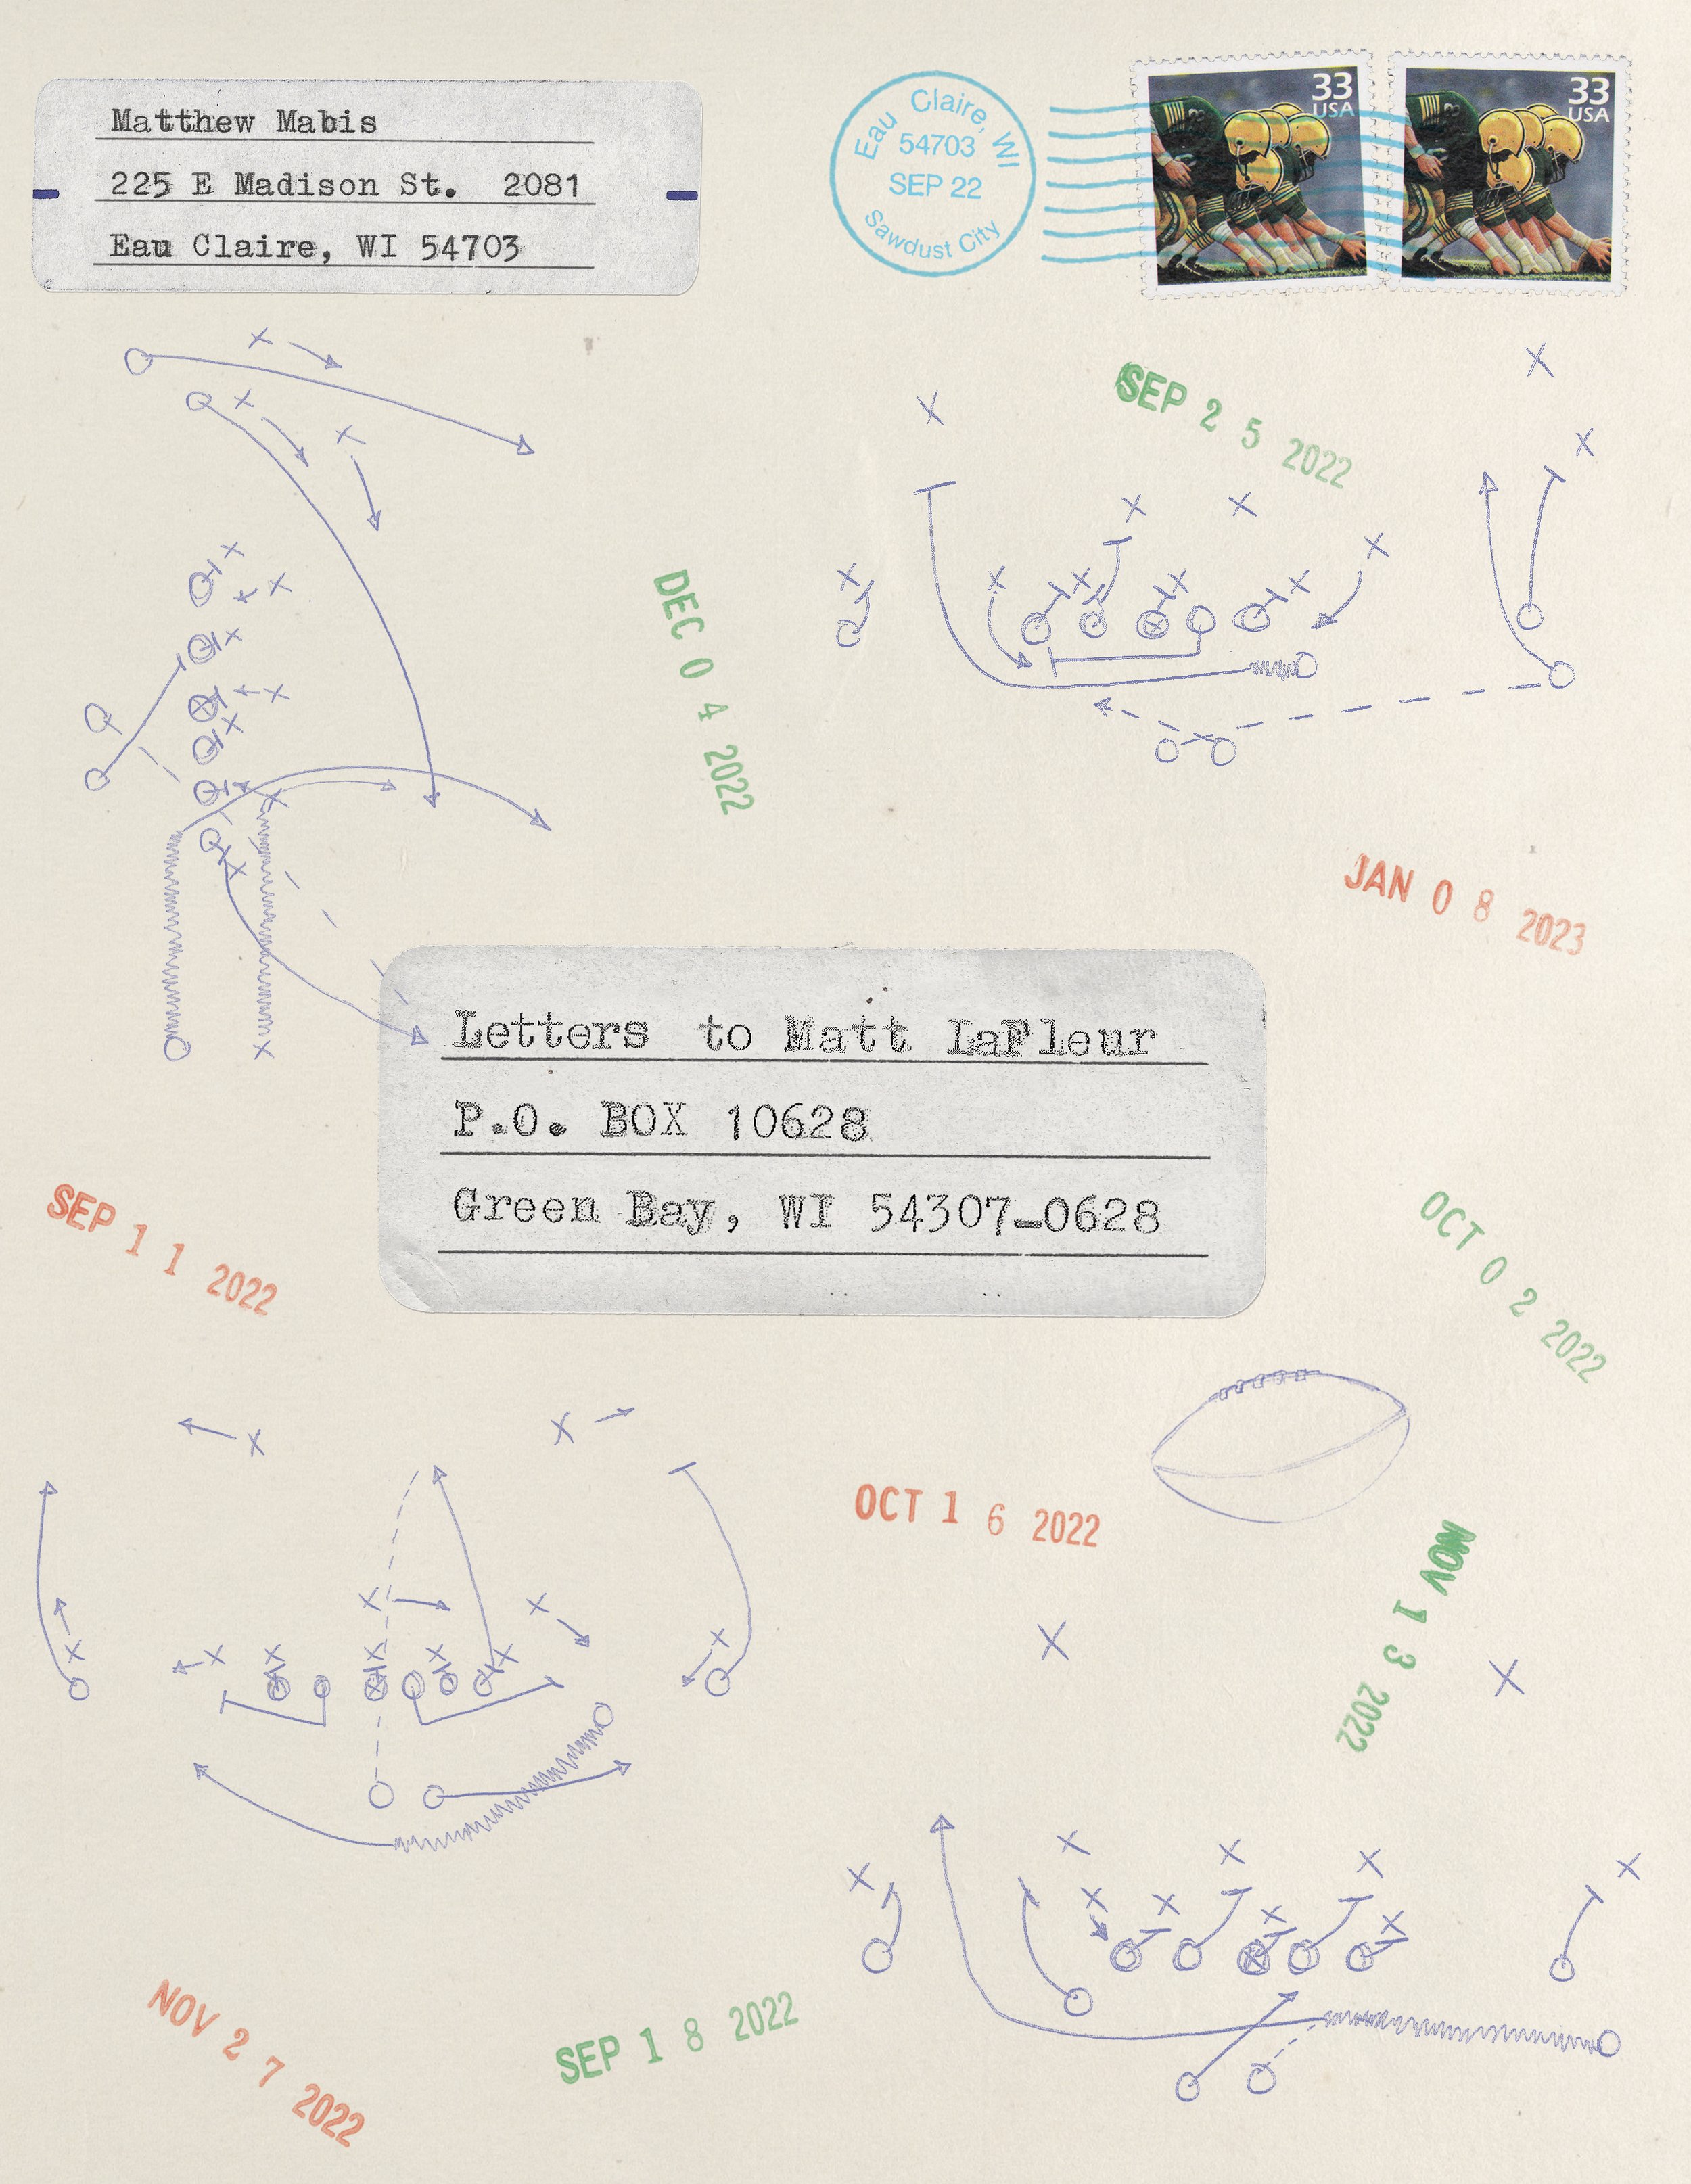 Matthew Mabis
225 E Madison St. 2081
Eau Claire, WI 54703
Eau Claire, WI
54703
SEP 22
Sawdust City
33
USA
33
USA
SEP 25 2022
DEC 04 2022
JAN 08 2023
Letters to Matt LaFleur
P.O. BOX 10628
Green Bay, WI 54307-0628
SEP 11 2022
OCT 02 2022
OCT 16 2022
NOV 13 2022
NOV 27 2022
SEP 18 2022